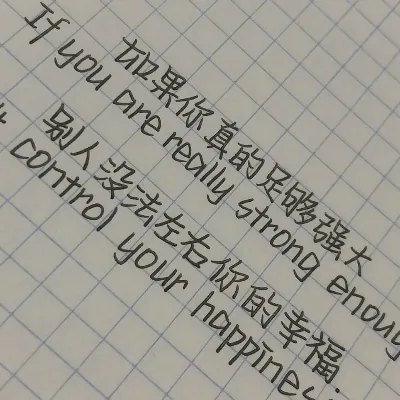 如果你真的足够强大
If you are really strong enoug
别人没法左右你的幸福.
control your happines